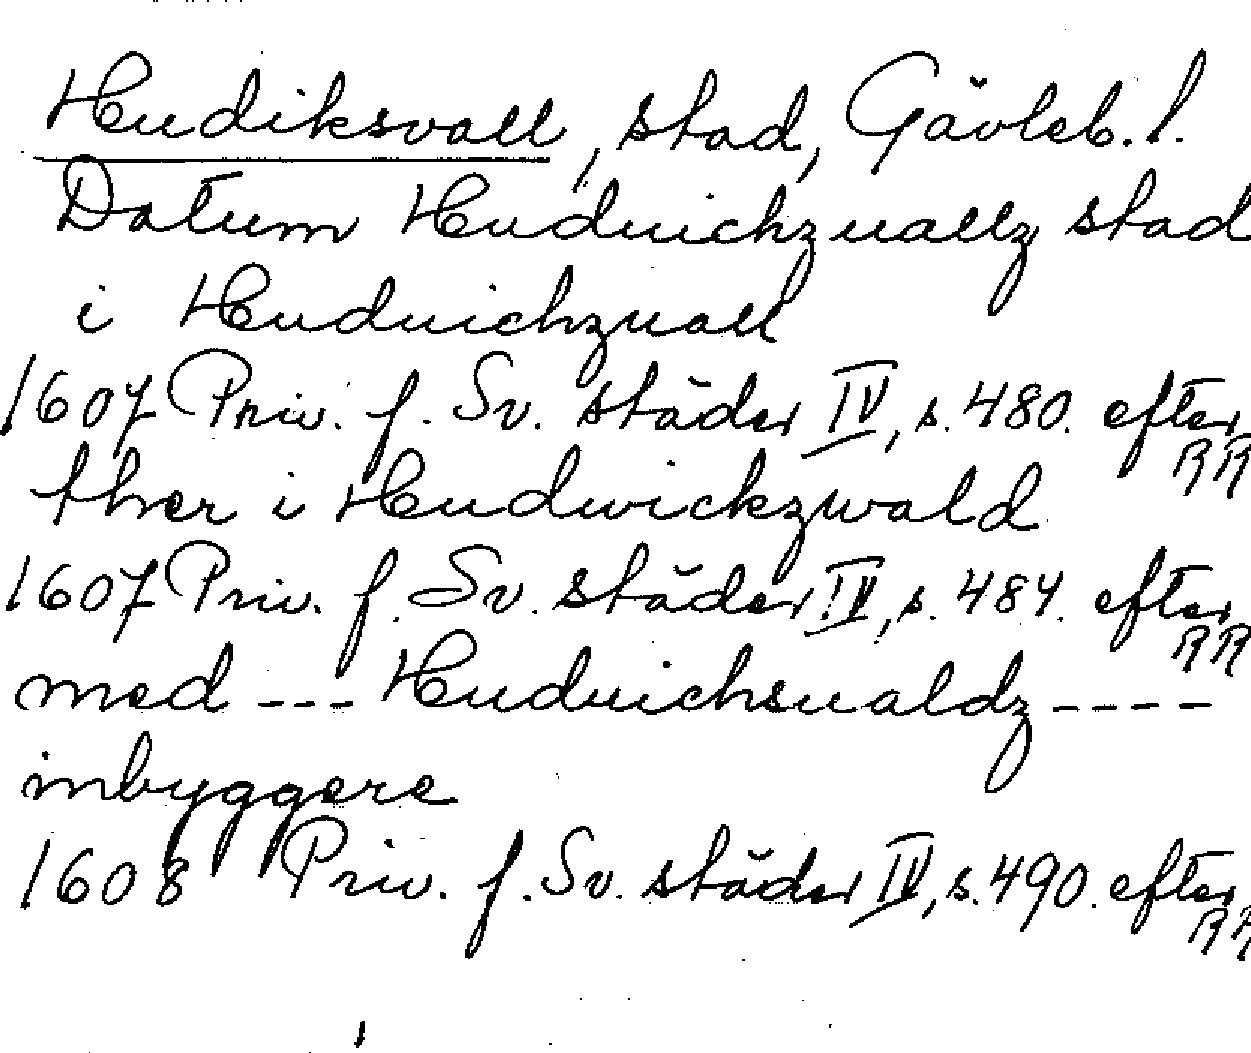 Hudiksvall, stad, Gävleb. l.
Datum Huduichzuallz stad
i Huduichzuall
1607 Priv. f. Sv. städer IV, s. 480. efter RR
ther i Hudwickzwald
1607 Priv. f. Sv. städer IV, s. 484. efter RR
med --- Huduichsualdz ----
inbyggere
1608 Priv. f. Sv. städer IV, s. 490. efter RR